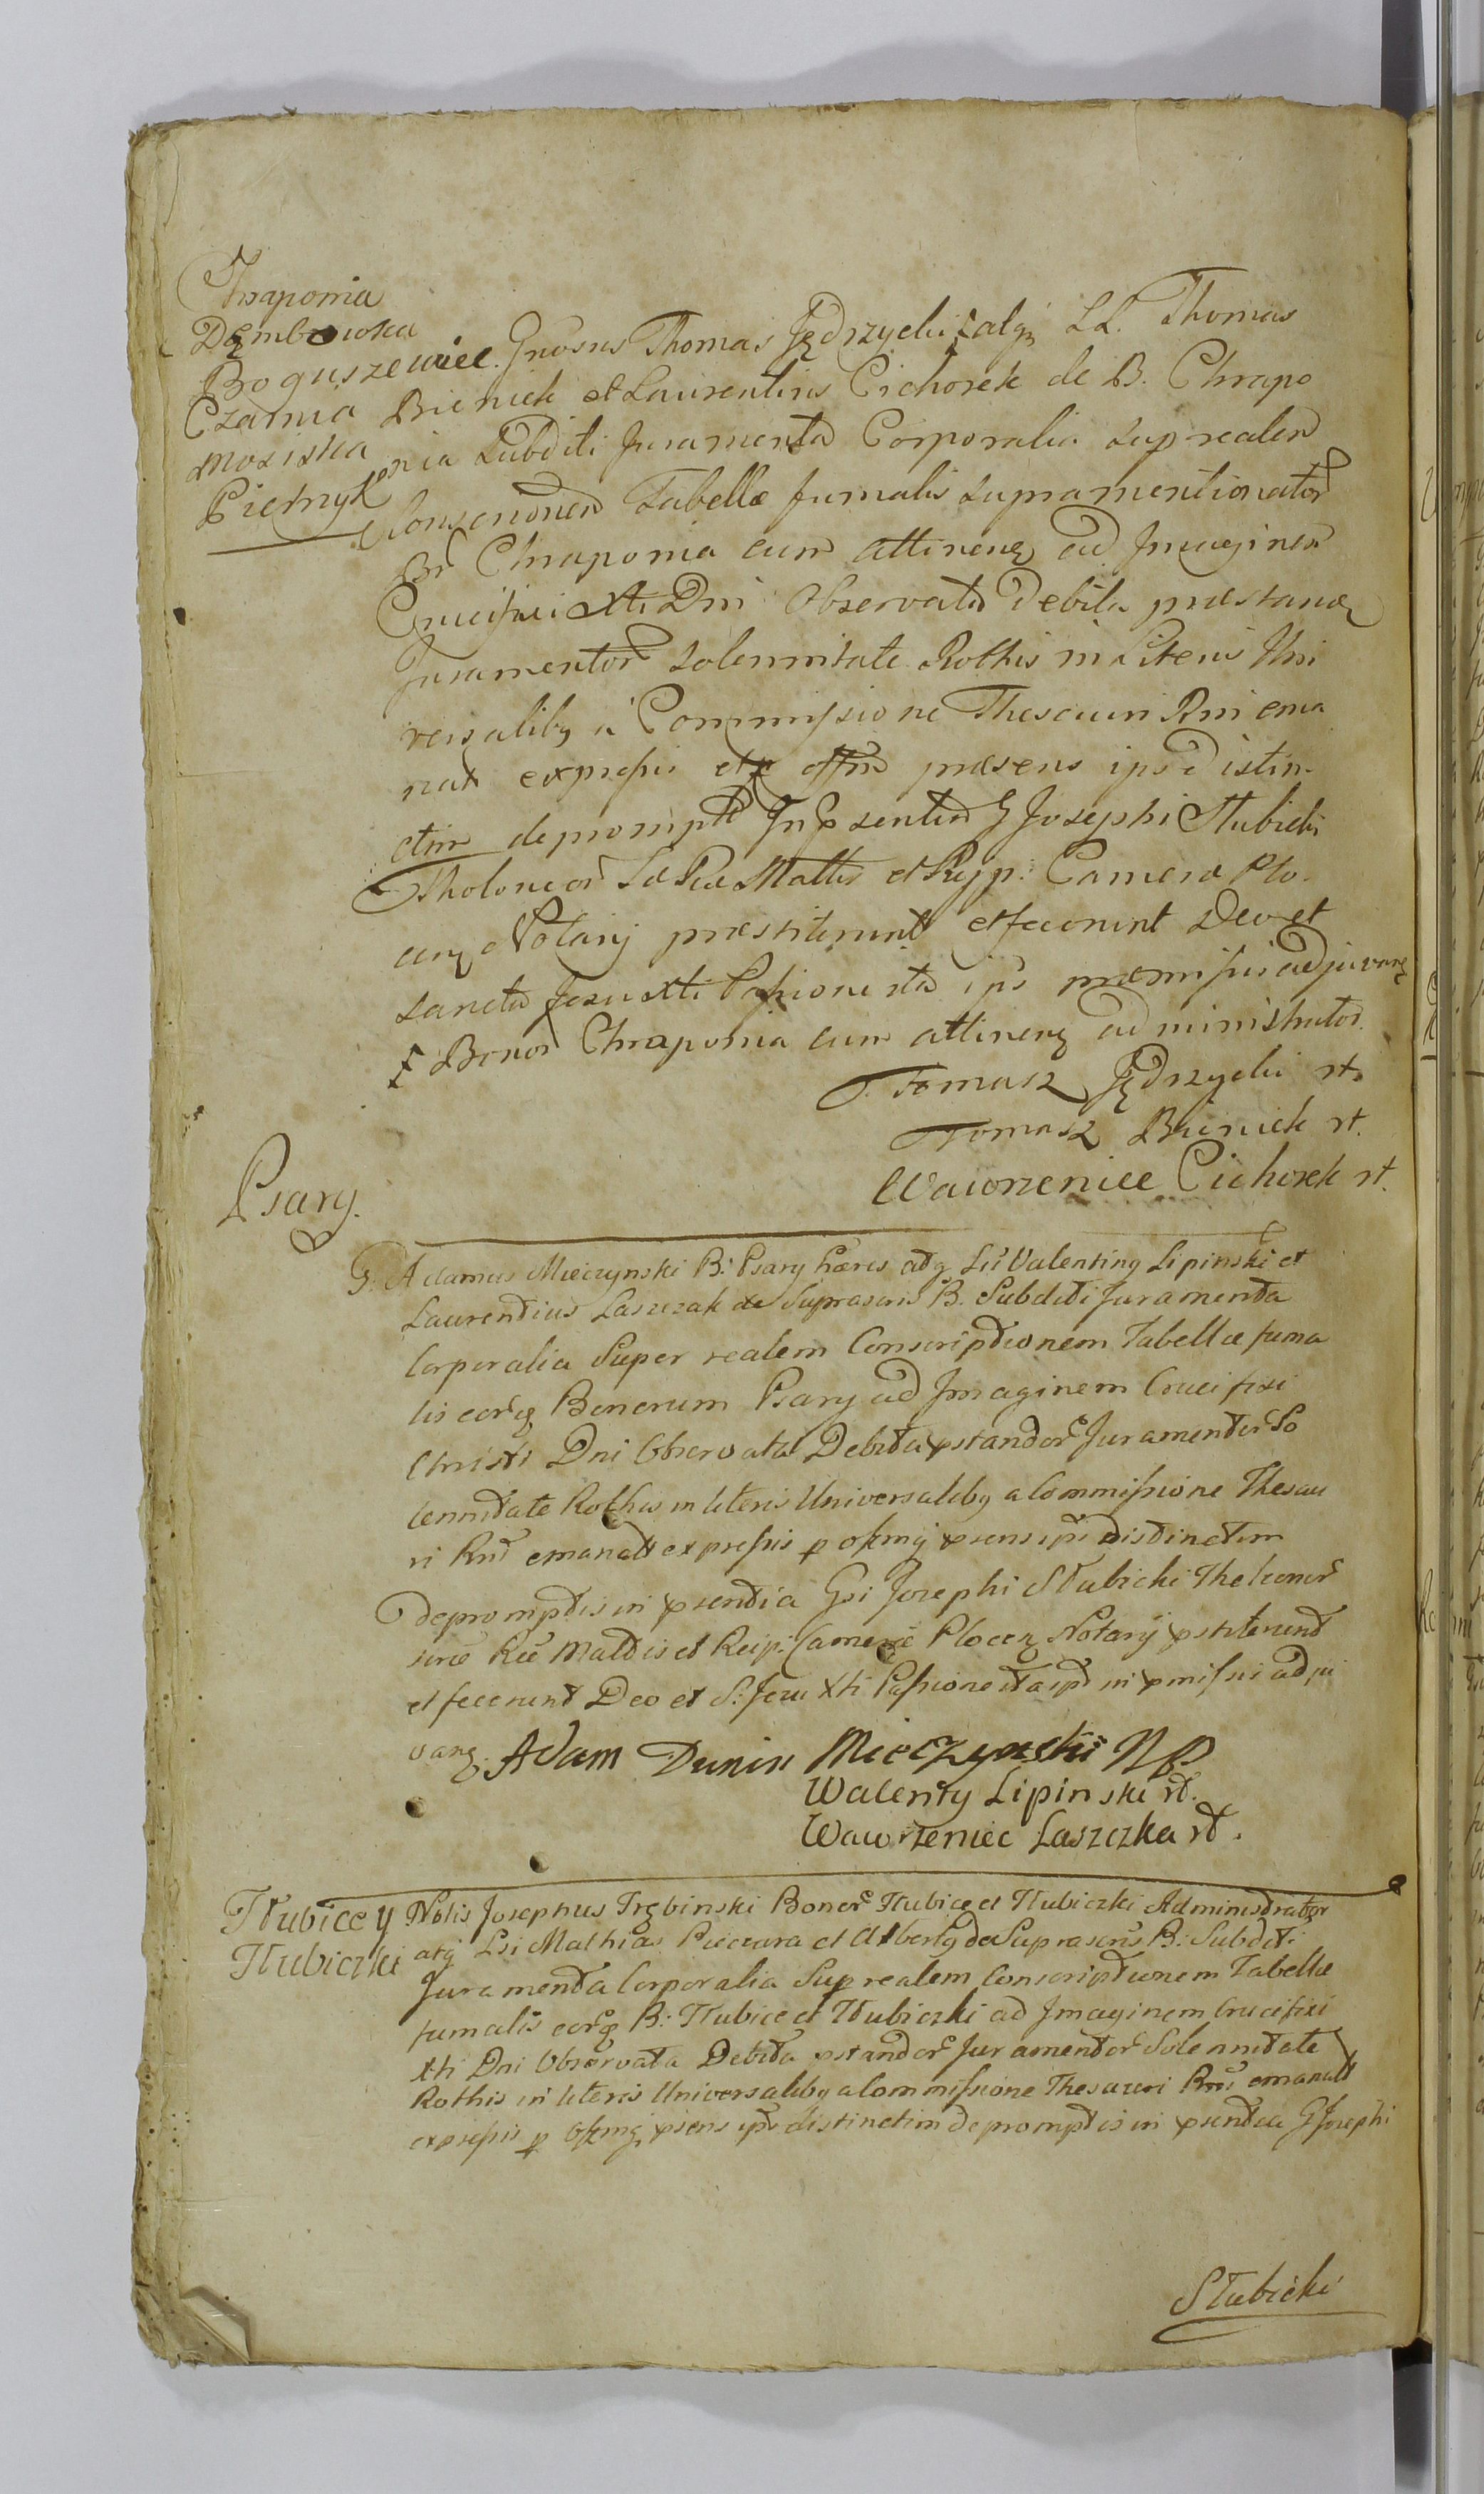 Chraponia
Dęmbowka
Boguszewiec
Czarnia
Mosiska
Pietrzyk
Gnosus Thomas Jędrzycki atq, LL. Thomas
Bieniek et Laurentius Cichosek de B. Chrapo
nia Subditi Juramenta Corporalia sup realem
Conscrionem Tabellæ fumalis supramentionator
Br Chraponia cum attinenz ad Imaginem
Crucifixi Xti Dni Observata debita præstanz
Juramentor Solennitate Rothis in Literis Uni
versalibq a Commissione Thesauri Rni ema
nat expressis et p offm præsens ips distin-
ctim depromptis In pzsentia G Josephi Słubicki
Tholoneor Sæ Ræ Mattis et Reip: Cameræ Plo-
cenz Notarij præstiterunt et fecerunt Deo et
Sancta Jesu Xti Passione ita ips præmissis adjuvanz
Bonor Chraponia cum attinenz administrator
Tomasz Jędrzycki rt.
Tomasz Bieniek rt.
Wawrzeniec Cichosek rt.
Psary.
G. Adamus Mieczynski B: Psary hæres atq Lri Valentinq Lipinski et
Laurentius Laszczak de Suprascris B. Subditi Juramenta
Corporalia Super realem Conscriptionem Tabellæ fuma
lis eorq Bonorum Psary ad Imaginem Crucifixi
Christi Dni Observata Debita pstandor Juramentor So
lennitate Rothis in literis Universalibq a Commissione Thesau
ri Rni emanatt expressis p offmq psens ips distinctim
depromptis in psentia Gsi Josephi Słubicki Theloneor
Mattis et Reip: Cameræ Plocenz Notarij pstiterunt
et fecerunt Deo et S: Jezu Xti Passione ita ips in pmissis adju
vanz. Adam Dunin Mieczynski
Walenty Lipinski rt.
Wawrzeniec Laszczka rt.
Tłubice y
Tłubiczki
Nblis Josephus Trębinski Bonor Tłubice et Tłubiczki Administrator
atq Lsi Mathias Pieczara et Albertq de Suprascris B: Subditi
Juramenta Corporalia Sup realem Conscriptionem Tabellæ
fumalis eorq B: Tłubice et Tłubiczki ad Imaginem Crucifixi
Xti Dni Observata Debita pstandor Juramentor Solennitate
Rothis in literis Universalibq a Commissione Thesauri Rni emanatt
expressis p offmq psens ips distinctim depromptis in psentia G Josephi
Słubicki